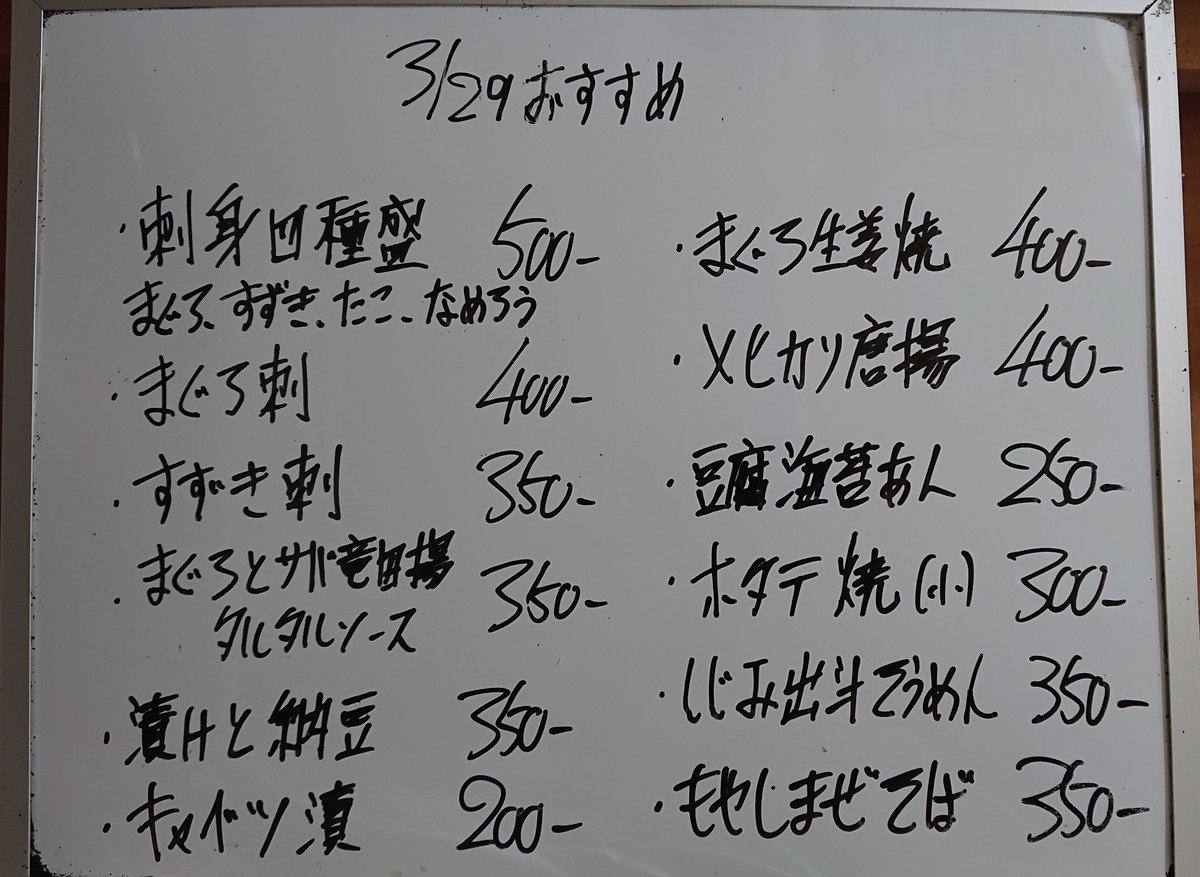 3/29おすすめ
・刺身四種盛 500-
まぐろ、すずき、たこ、なめろう
・まぐろ刺 400-
・すずき刺 350-
・まぐろとサバ竜田揚 350-
タルタルソース
・漬けと納豆 350-
・キャベツ漬 200-
・まぐろ生姜焼 400-
・メヒカリ唐揚 400-
・豆腐海苔あん 250-
・ホタテ焼(小) 300-
・しじみ出汁そうめん 350-
・もやしまぜそば 350-